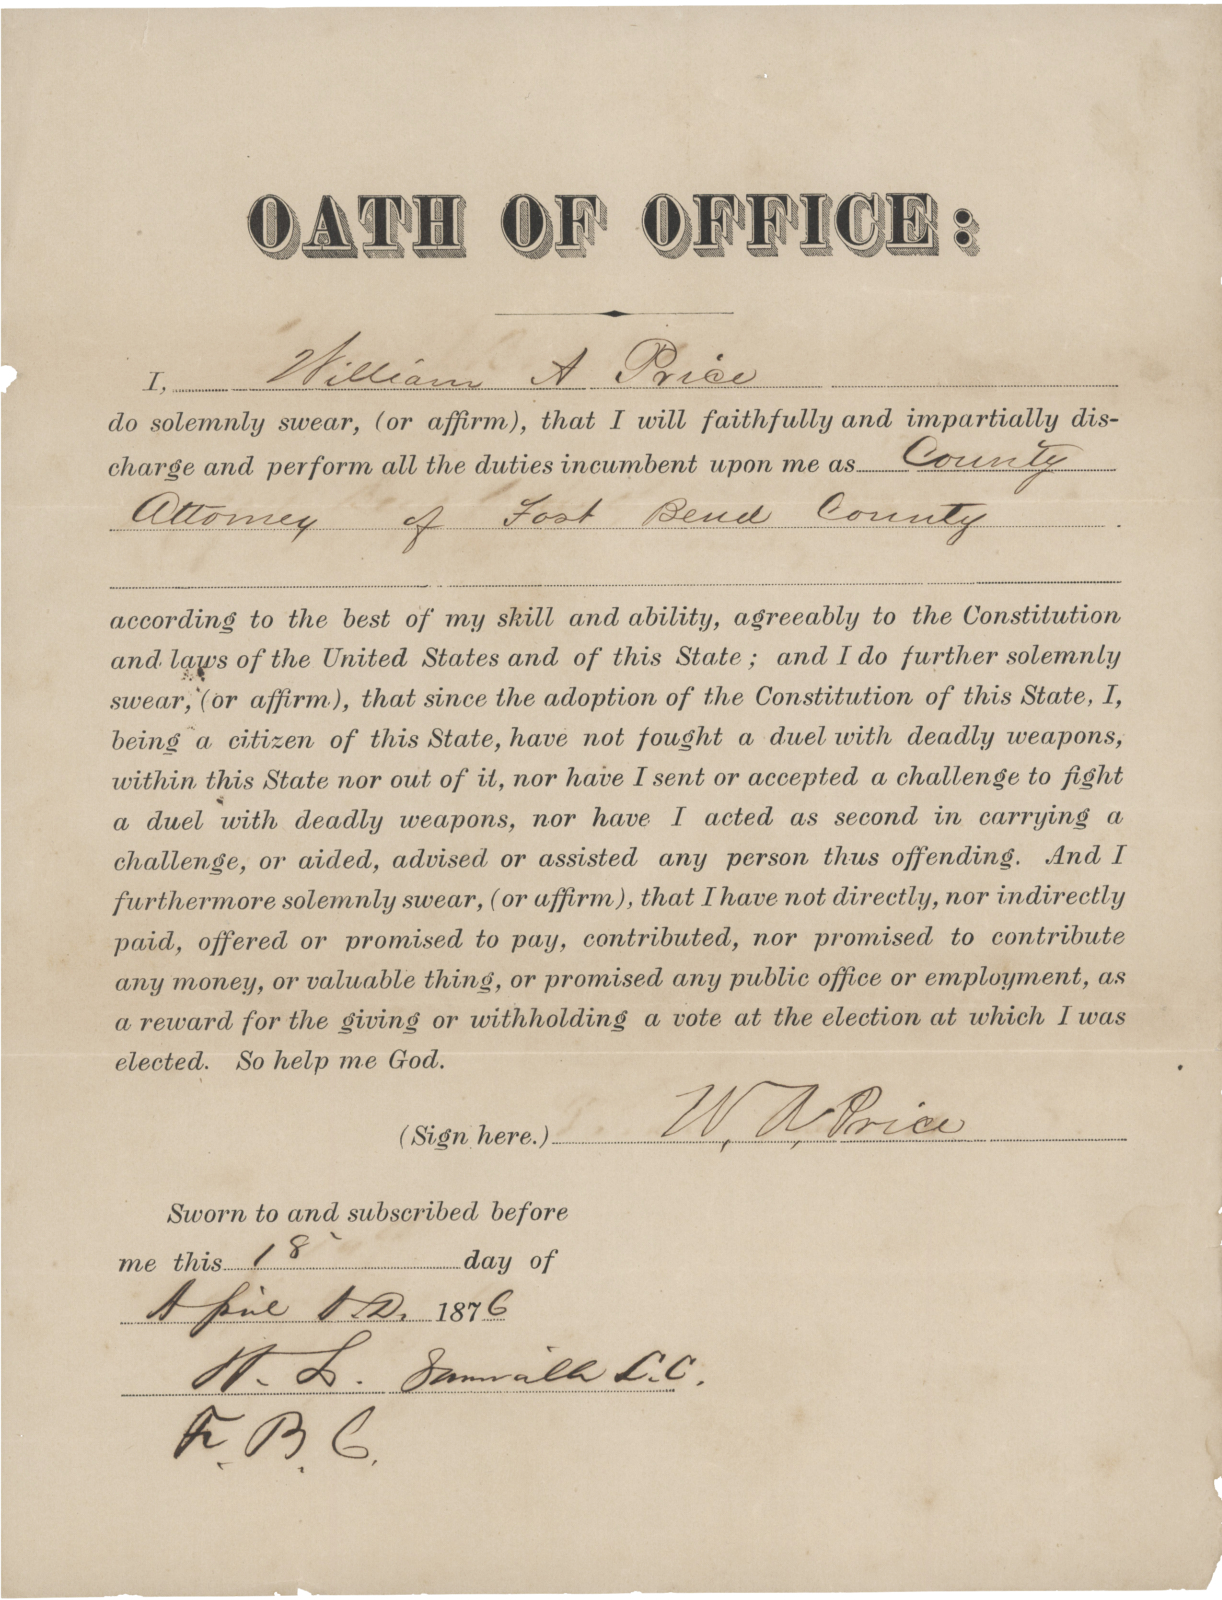 OATH OF OFFICE:
I, William A Price
do solemnly swear, (or affirm), that I will faithfully and impartially dis-
charge and perform all the duties incumbent upon me as County
Attorney of Fort Bend County
according to the best of my skill and ability, agreeably to the Constitution
and laws of the United States and of this State; and I do further solemnly
swear, (or affirm), that since the adoption of the Constitution of this State, I,
being a citizen of this State, have not fought a duel with deadly weapons,
within this State nor out of it, nor have I sent or accepted a challenge to fight
a duel with deadly weapons, nor have I acted as second in carrying a
challenge, or aided, advised or assisted any person thus offending. And I
furthermore solemnly swear, (or affirm), that I have not directly, nor indirectly
paid, offered or promised to pay, contributed, nor promised to contribute
any money, or valuable thing, or promised any public office or employment, as
a reward for the giving or withholding a vote at the election at which I was
elected. So help me God.
(Sign here.) W. A. Price
Sworn to and subscribed before
me this 18 day of
April A.D. 1876
L.
F. B. C.